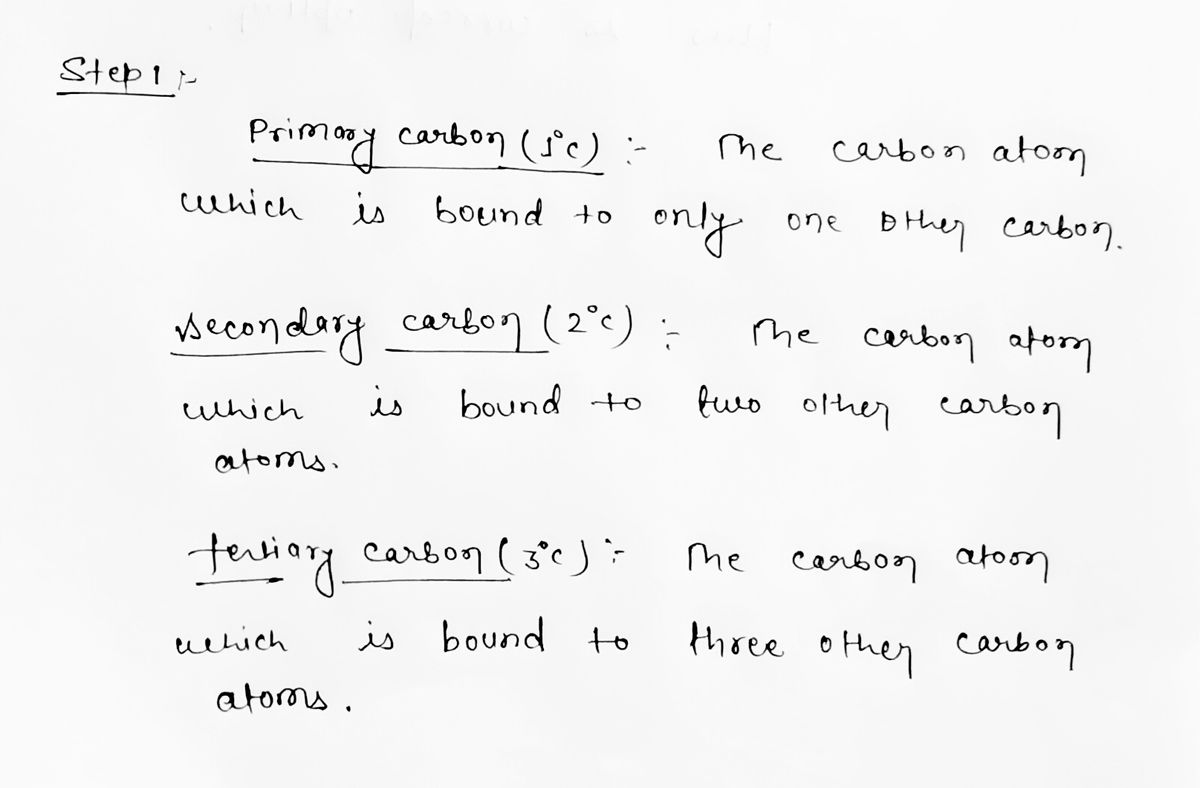 Step 1 :-
Primary carbon (1°c) :- The carbon atom
which is bound to only one other carbon.
Secondary carbon (2°c) :- The carbon atom
which is bound to two other carbon
atoms.
tertiary carbon (3°c) :- The carbon atom
which is bound to three other carbon
atoms.